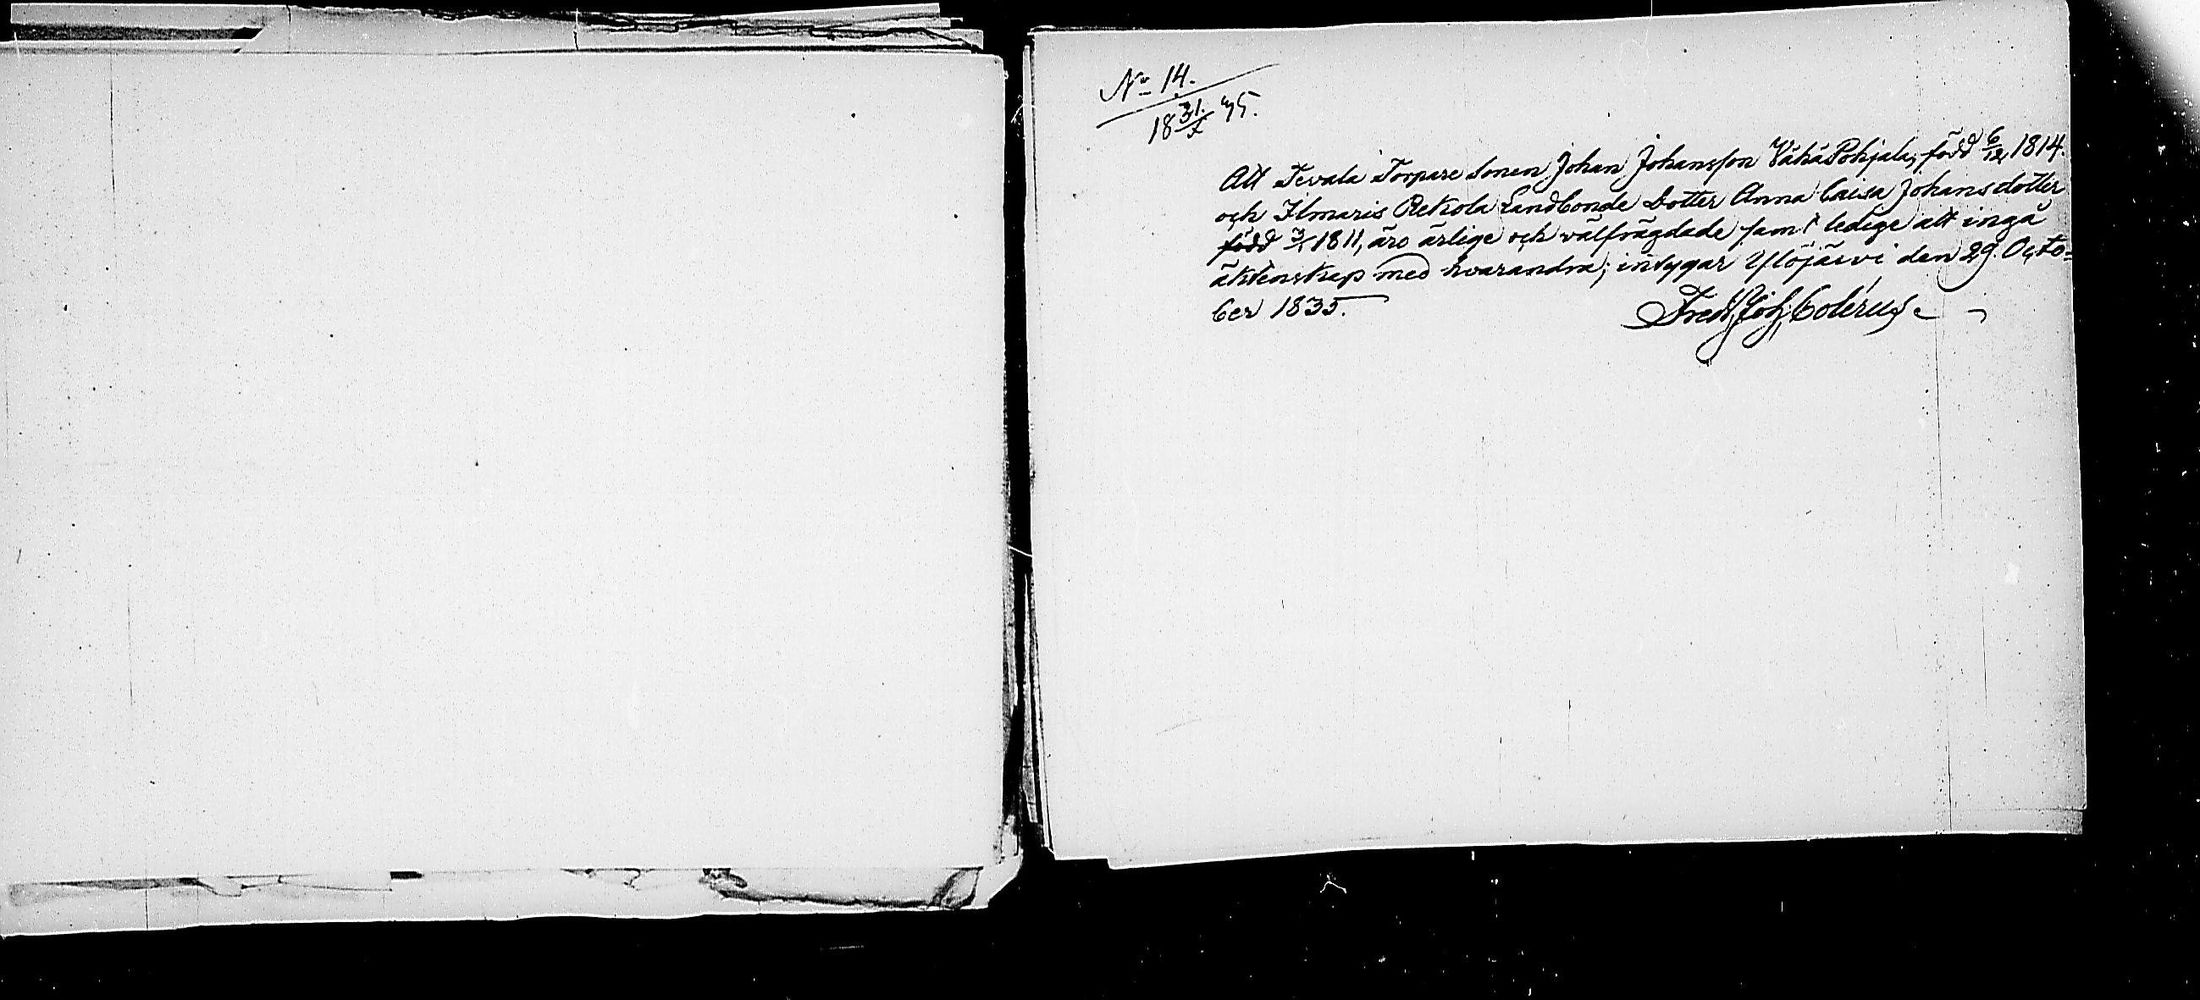 No 14.
18 31/X 35.
Att Tevala Torpare Sonen Johan Johansson Vähä Pohjala, född 6/12 1814.
och Ilmaris Rekola Landbonde Dotter Anna Caisa Johansdotter
född 3/1 1811, äro ärlige och välfrägdade samt ledige att ingå
äktenskap med hvarandra; intygar Ylöjärvi den 29. Octo=
ber 1835.
Fredr. Joh. Colérus